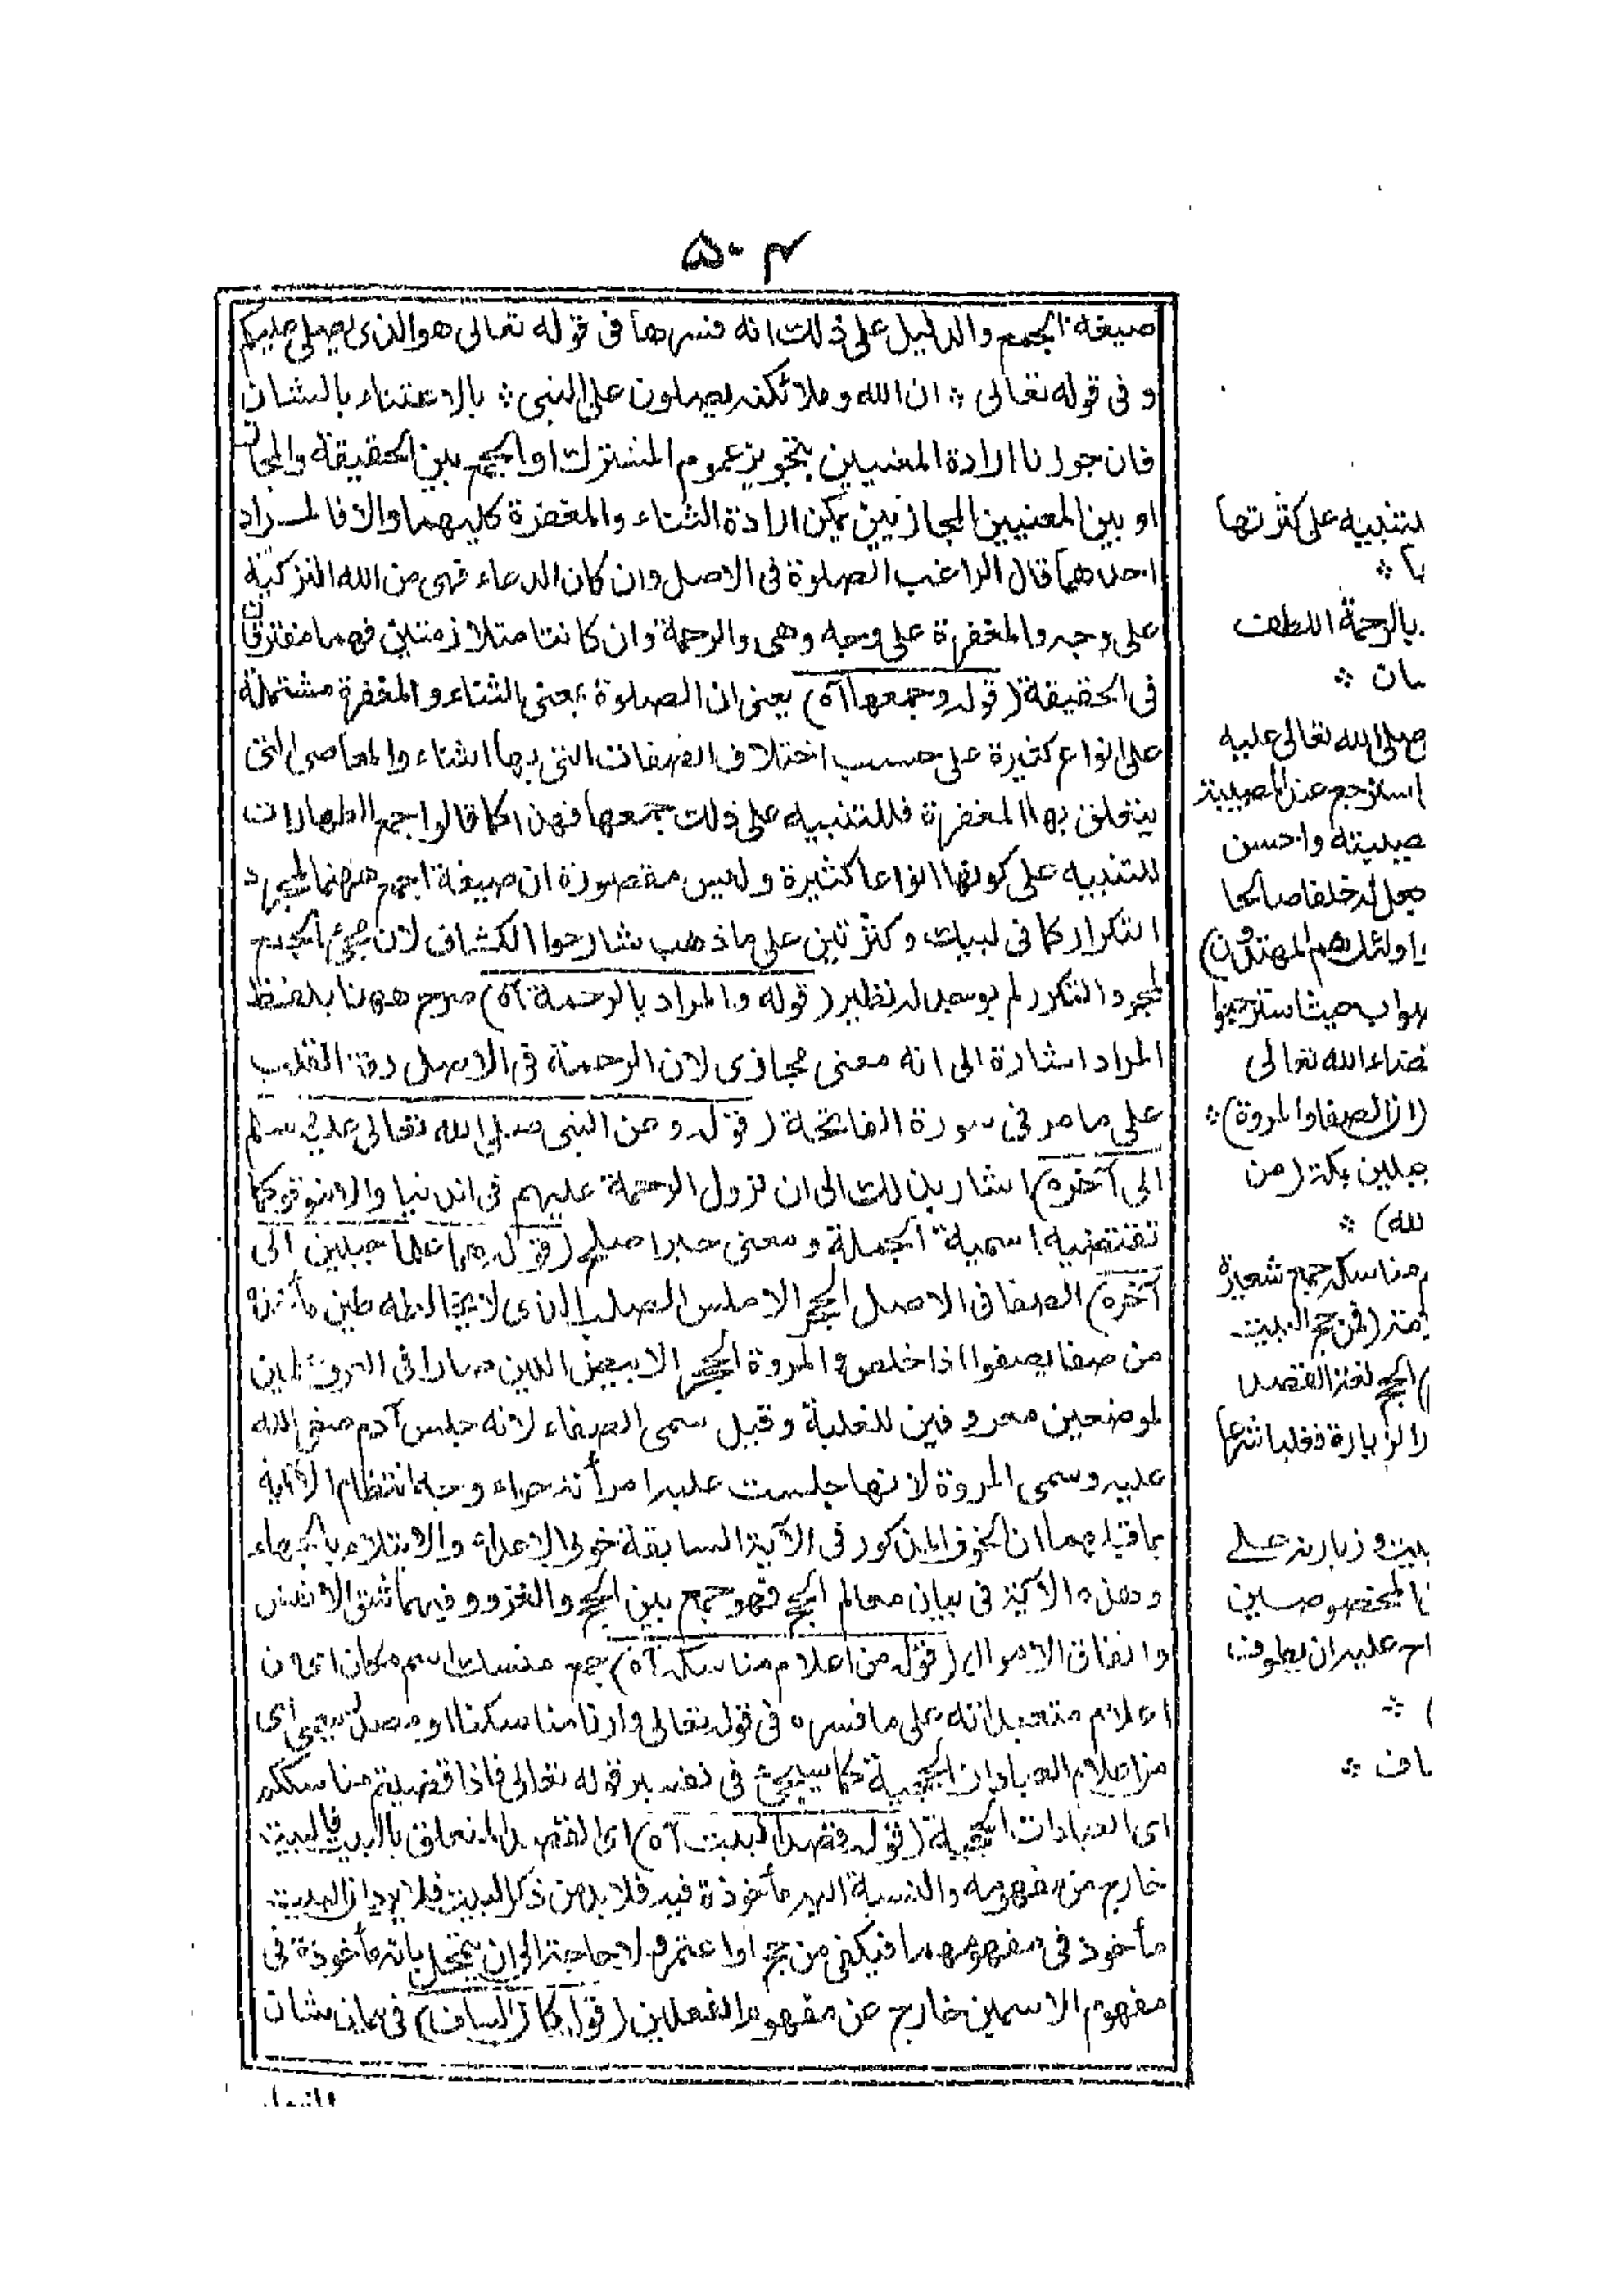 ۵۰۴
صيغة الجمع والدليل على ذلك انه فسرها فى قوله تعالى هو الذى يصلى عليكم
و فى قوله تعالى * ان الله وملائكته يصلون على النبى * بالاعتناء بالشان
فان جوزنا ارادة المعنيين بتجويز عموم المشترك او الجمع بين الحقيقة والمجاز
او بين المعنيين المجازيين يمكن ارادة الثناء والمغفرة كليهما والا فالمراد
احدهما قال الراغب الصلوة فى الاصل وان كان الدعاء فهى من الله التزكية
على وجه والمغفرة على وجه وهى والرحمة وان كانتا متلازمتين فهما مفترقان
فى الحقيقة (قوله وجمعها آه) يعنى ان الصلوة بمعنى الثناء و المغفرة مشتملة
على انواع كثيرة على حسب اختلاف الصفات التى بها الثناء والمعاصى التى
يتعلق بها المغفرة فللتنبيه على ذلك جمعها فهذا كما قالوا جمع الطهارات
للتنبيه على كونها انواعا كثيرة و ليس مقصوده ان صيغة الجمع ههنا لمجرد
التكرار كما فى لبيك و كرتين على ما ذهب شارحوا الكشاف لان مجئ الجمع
لمجرد التكرر لم يوجد له نظير (قوله والمراد بالرحمة آه) صرح ههنا بلفظ
المراد اشارة الى انه معنى مجازى لان الرحمة فى الاصل رقة القلب
على ما مر فى سورة الفاتحة (قوله وعن النبى صلى الله تعالى عليه وسلم
الى آخره) اشار بذلك الى ان نزول الرحمة عليهم فى الدنيا والاخرة كما
تقتضيه اسمية الجملة و معنى (قوله هما علما جبلين الى
آخره) الصفا فى الاصل الحجر الاملس الصلب الذى لا يخالطه طين مأخوذ
من صفا يصفوا اذا خلص والمروة الحجر الابيض اللين صارا فى العرف علمين
لموضعين معروفين للغلبة وقيل سمى الصفاء لانه جلس آدم صفى الله
عليه وسمى المروة لانها جلست عليه امرأته حواء و وجه انتظام الآية
بما قبلهما ان الخوف المذكور فى الآية السابقة خوف الاعداء والابتلاء بالجهاد
وهذه الآية فى بيان معالم الحج فهو جمع بين الحج والغزو وفيهما شق الانفس
وانفاق الاموال (قوله من اعلام مناسكه آه) جمع منسك اسم مكان اى من
اعلام متعبداته على ما فسره فى قوله تعالى وارنا مناسكنا او مصدر ميمى اى
من اعلام العبادات الحجية كما سيجئ فى تفسير قوله تعالى فاذا قضيتم مناسككم
اى العبادات الحجية (قوله قصد البيت آه) اى القصد المتعلق بالبيت فالبيت
خارج من مفهومه والنسبة اليه مأخوذة فيه فلا بد من ذكر البيت فلا يرد ان البيت
مأخوذ فى مفهومهما فيكفى من حج او اعتمر ولا حاجة الى ان يتمحل بانه مأخوذة فى
مفهوم الاسمين خارج عن مفهوم الفعلين (قوله كان اساف) فى بيان شان
لتنبيه على كثرتها
*
بالرحمة اللطف
سان *
صلى الله تعالى عليه
استرجع عند المصيبة
صيبته واحسن
جعل له خلفا صالحا
(واولئك هم المهتدون)
صواب حيث استرجعوا
ضاء الله تعالى
(ان الصفا والمروة) *
جبلين بمكة (من
لله) *
مناسكه جمع شعيرة
(فمن حج البيت
الحج لغة القصد
الزيارة فغلبا شرعا
بيت و زيارته على
المخصوصين
اح عليه ان يطوف
) *
اف *